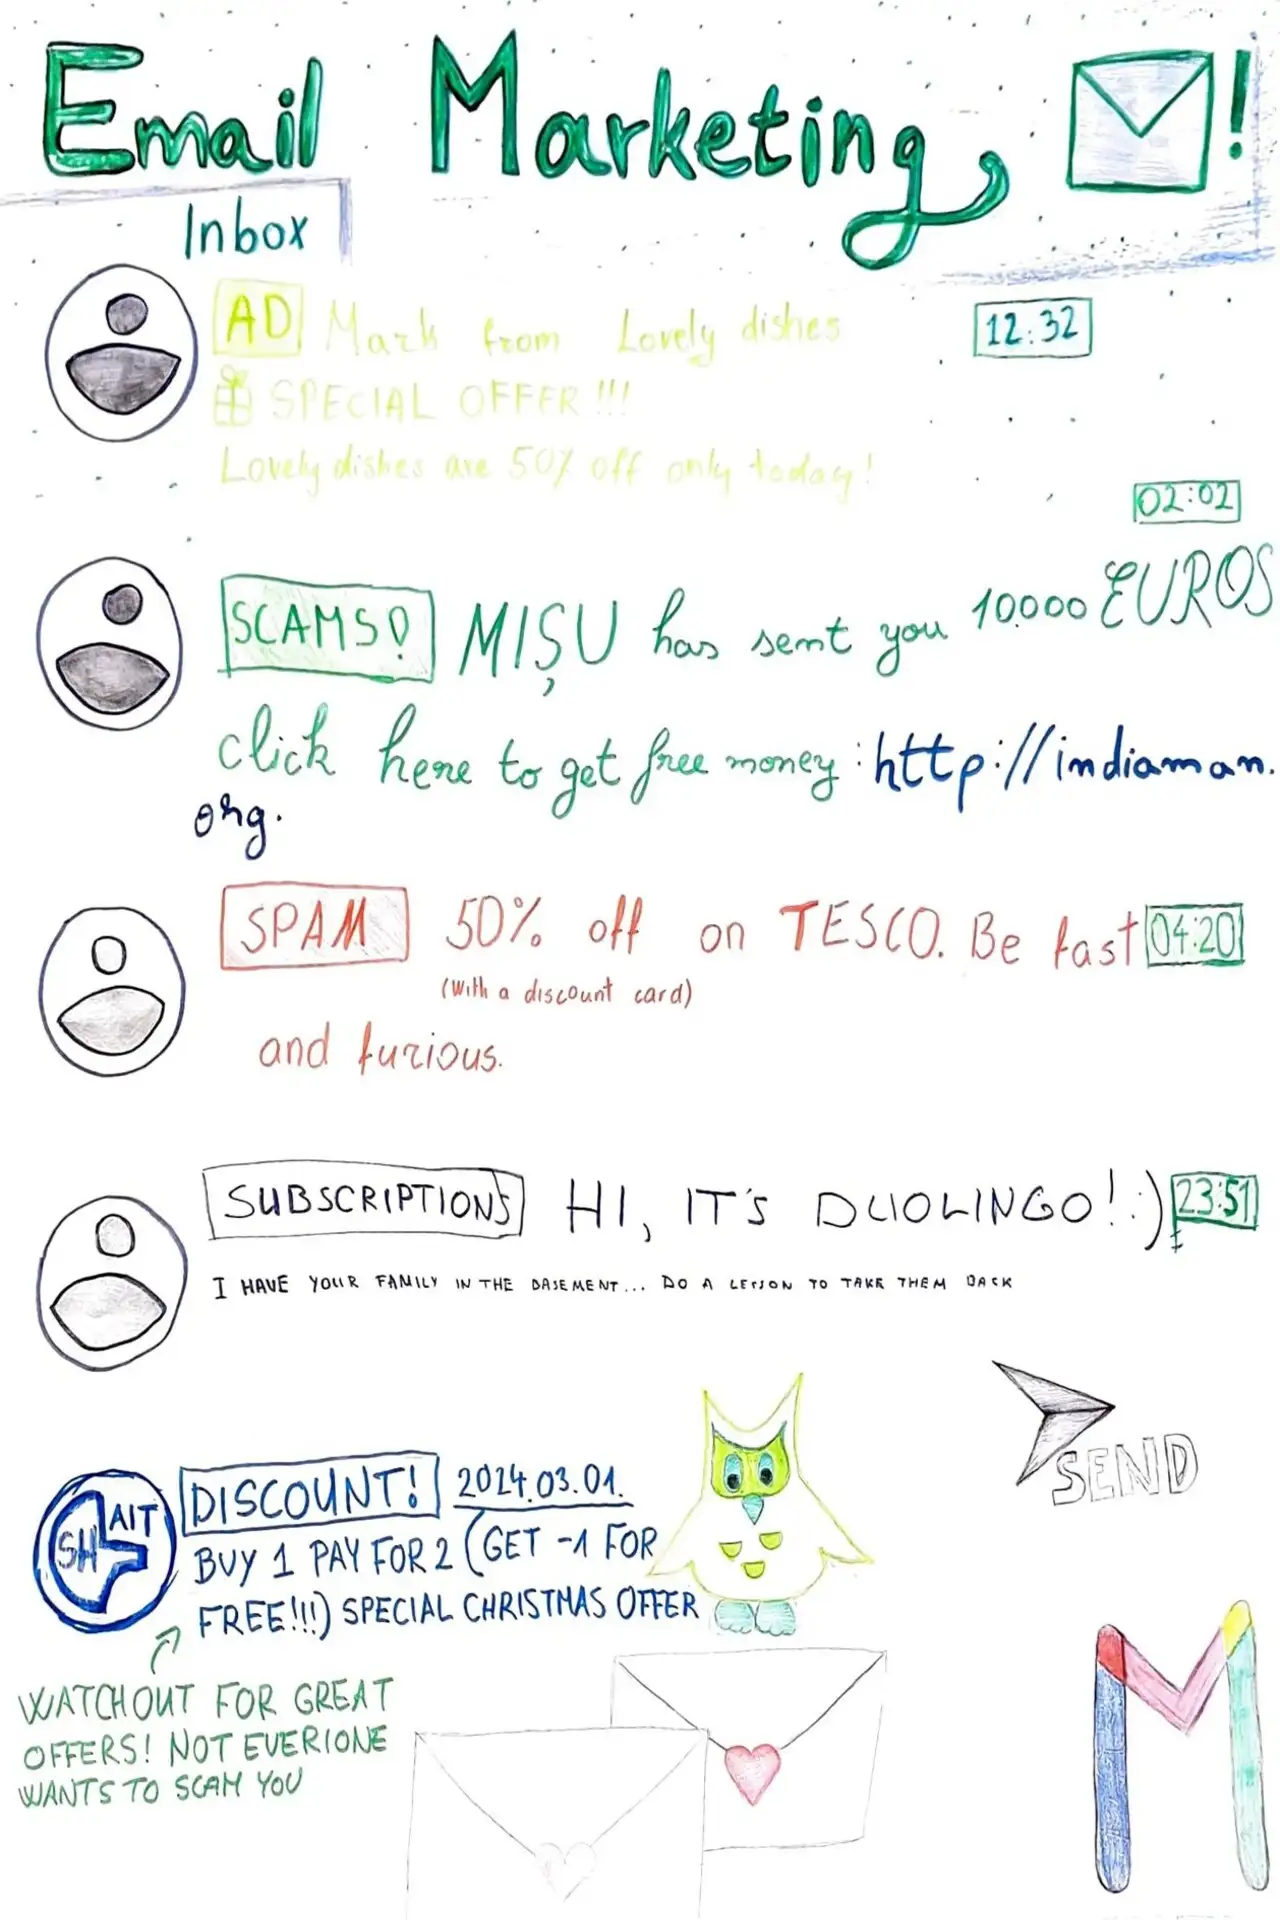 Email Marketing !
Inbox
AD Mark from Lovely dishes 12:32
SPECIAL OFFER!!!
Lovely dishes are 50% off only today!
02:02
SCAMS! MIȘU has sent you 10.000 EUROS
click here to get free money: http://indiaman.
org.
SPAM 50% off on TESCO. Be fast 04:20
(with a discount card)
and furious.
SUBSCRIPTIONS HI, IT'S DUOLINGO! :) 23:51
I HAVE YOUR FAMILY IN THE BASEMENT... DO A LESSON TO TAKE THEM BACK
SEND
SHAIT DISCOUNT! 2024.03.01.
BUY 1 PAY FOR 2 (GET -1 FOR
FREE!!!) SPECIAL CHRISTMAS OFFER
WATCHOUT FOR GREAT
OFFERS! NOT EVERIONE
WANTS TO SCAM YOU
M